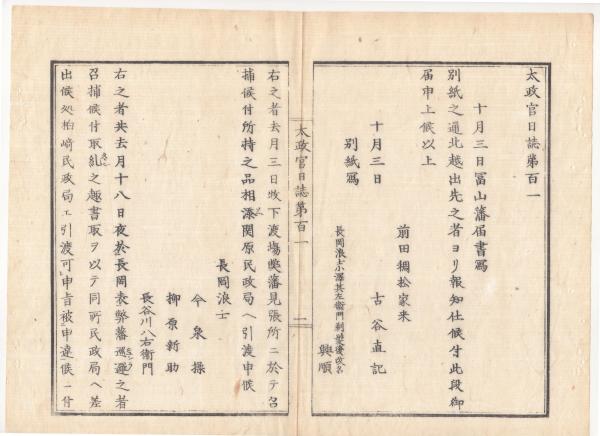 太政官日誌第百一
十月三日冨山藩届書寫
別紙之通北越出先之者ヨリ報知仕候付此段御
届申上候以上
前田稠松家来
十月三日 古谷直記
別紙寫
長岡浪士小澤其左衛門剃髮後改名
興順
太政官日誌第百一
一
右之者去月三日坂下渡塲弊藩見張所ニ於テ召
捕候付所持之品相添関原民政局ヘ引渡申候
長岡浪士
今泉操
柳原新助
長谷川八右衛門
右之者共去月十八日夜於長岡表弊藩巡邏之者
召捕候付取糺之趣書取ヲ以テ同所民政局ヘ差
出候処柏崎民政局エ引渡可申旨被申達候ニ付